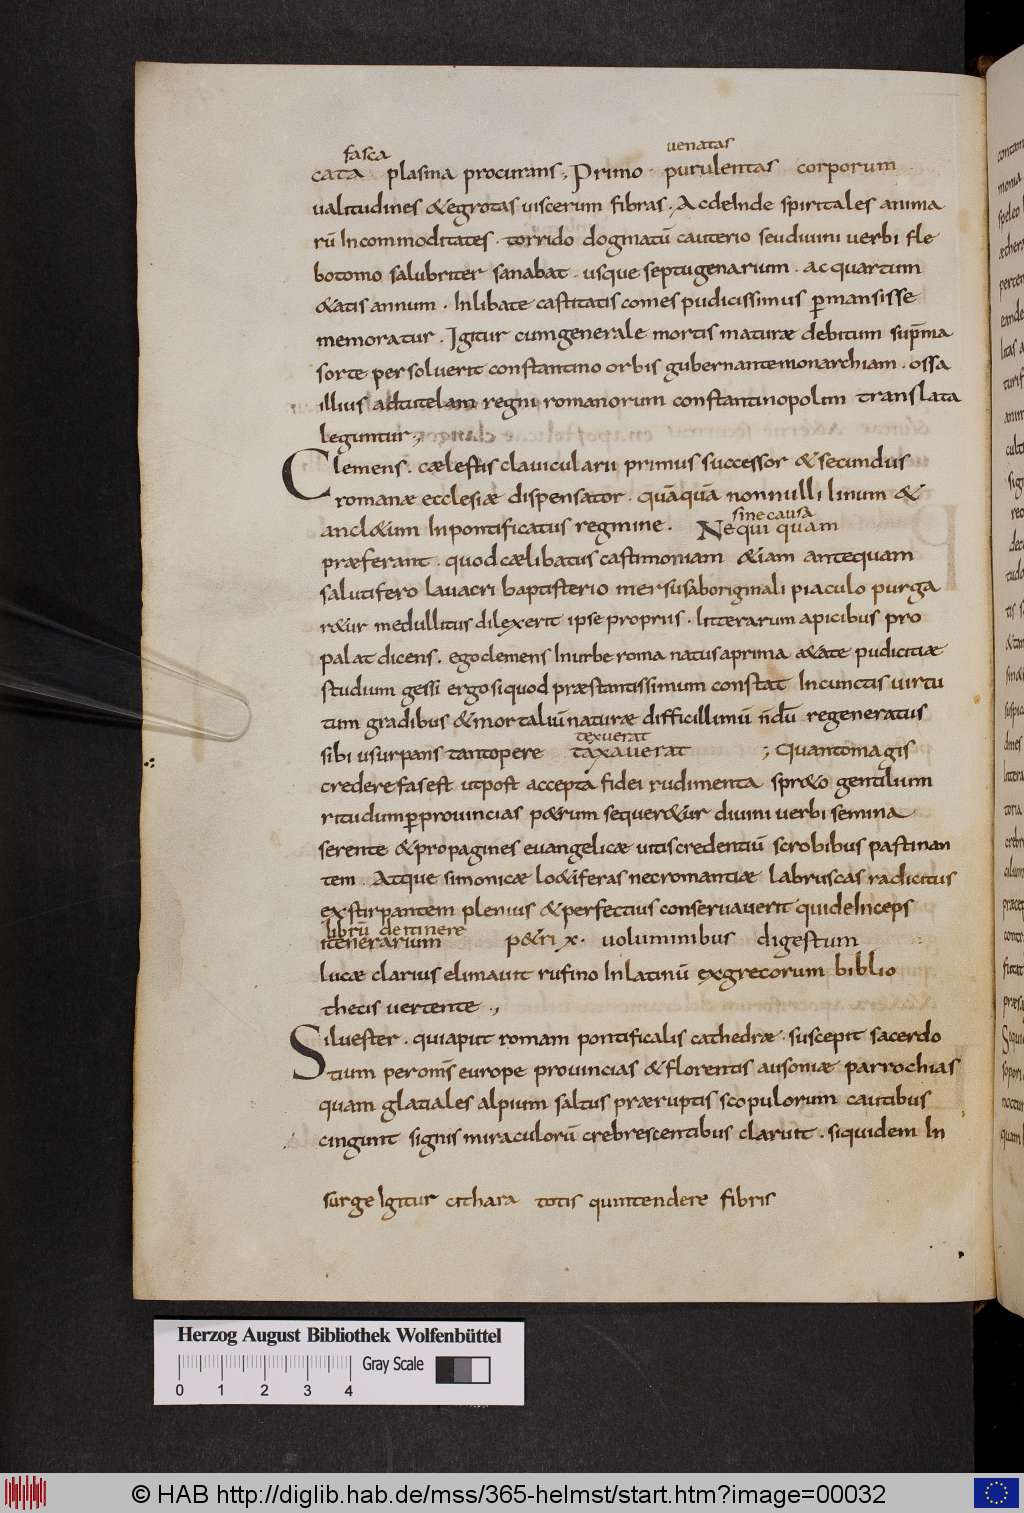 fasca uenatas
cata plasma procurans ; Primo purulentas corporum
ualitudines & egrotas uiscerum fibras ; Ac deInde spiritales anima
rū Incommoditates · torrido dogmatū cauterio seu diuini uerbi fle
botomo salubriter sanabat · usque septugenarium · ac quartum
&atis annum · Inlibate castitatis comes pudicissimus pmansisse
memoratur . Igitur cum generale mortis naturæ debitum supma
sorte persoluerit constantino orbis gubernante monarchiam . ossa
illius ad tutelam regni romanorum constantinopolim translata
leguntur ;
Clemens . cælestis clauicularii primus successor & secundus
romanæ ecclesiæ dispensator . quāquā nonnulli linum &
ancl&um In pontificatus regmine .
sine causa
Nequi quam
præferant . quod cælibatus castimoniam &iam antequam
salutifero lauacri baptisterio mersus aboriginali piaculo purga
r&ur medullitus dilexerit ipse propriis . litterarum apicibus pro
palat dicens . ego clemens In urbe roma natus a prima æ&ate pudicitiæ
studium gessi ergo siquod præstantissimum constat In cunctis uirtu
tum gradibus & mortaliū naturæ difficillimū n̄dū regeneratus
texuerat
sibi usurpans tantopere taxauerat ; Quanto magis
credere fas est ut post accepta fidei rudimenta spr&o gentilium
ritu dum p prouincias p&rum sequer&ur diuini uerbi semina
serente & propagines euangelicæ uitis credentiū scrobibus pastinan
tem . Atque simonicæ lo&iferas necromantiæ labruscas radicitus
exstirpantem plenius & perfectius conseruauerit qui deInceps
librū de itinere
itenerarium p&ri x . uoluminibus digestum
lucæ clarius elimauit rufino In latinū ex grecorum biblio
thecis uertente .,
Siluester . qui aput romam pontificalis cathedræ . suscepit sacerdo
tium per omīs europe prouincias & florentis ausoniæ parrochias
quam glatiales alpium saltus præruptis scopulorum cautibus
cingunt signis miraculorū crebrescentibus claruit . siquidem In
surge Igitur cithara totis quintendere fibris
Herzog August Bibliothek Wolfenbüttel
Gray Scale
0 1 2 3 4
© HAB http://diglib.hab.de/mss/365-helmst/start.htm?image=00032